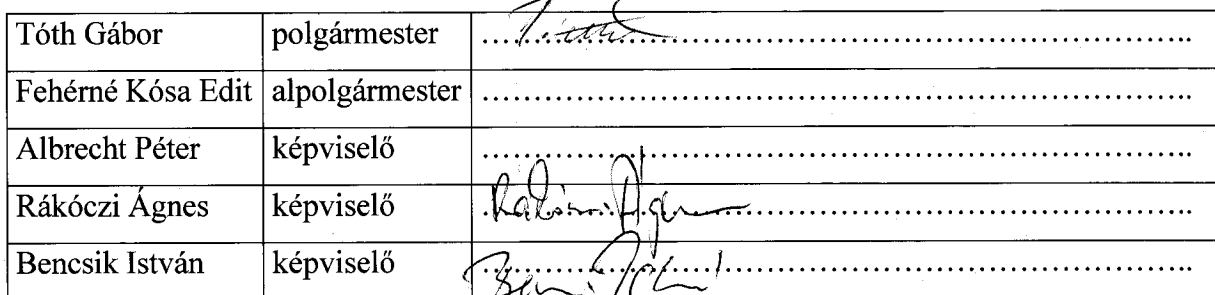 Tóth Gábor polgármester ....Tóth........................................
Fehérné Kósa Edit alpolgármester ........................................
Albrecht Péter képviselő ........................................
Rákóczi Ágnes képviselő .Rákóczi Ágnes........................................
Bencsik István képviselő ........................................